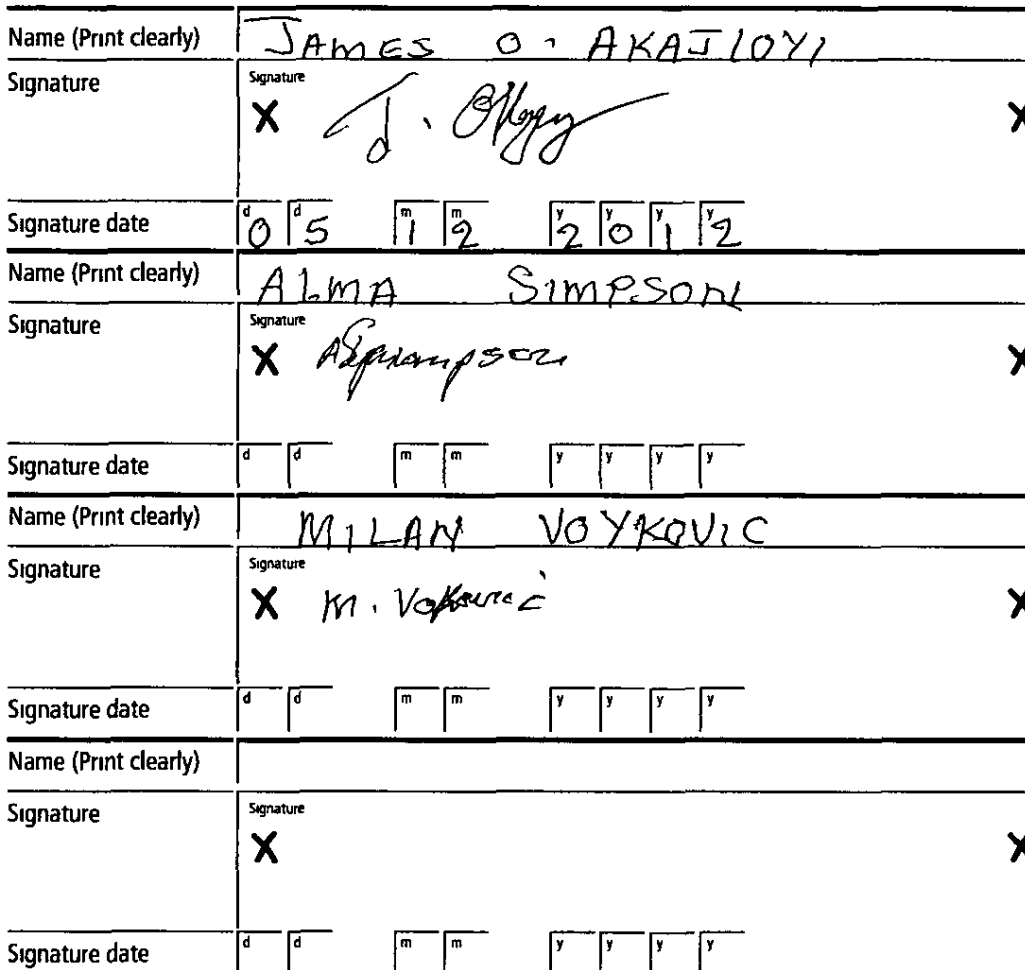 Name (Print clearly) JAMES O. AKAJIOYI
Signature Signature
X J.
X
Signature date d 0 d 5 m 1 m 2 y 2 y 0 y 1 y 2
Name (Print clearly) ALMA SIMPSON
Signature Signature
X
X
Signature date d d m m y y y y
Name (Print clearly) MILAN VOYKOVIC
Signature Signature
X M.
X
Signature date d d m m y y y y
Name (Print clearly)
Signature Signature
X
X
Signature date d d m m y y y y